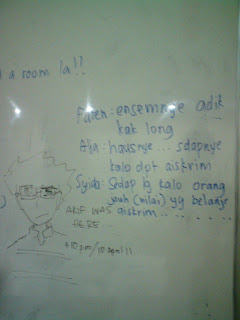 a room la!!
Faren: ensemnye adik
kak long
Alia: hausnye... sdapnye
kalo dpt aiskrim
Syida: Sedap lg kalo orang
jauh (nilai) yg belanje
aiskrim.. . . . . .
AKIF WAS
HERE